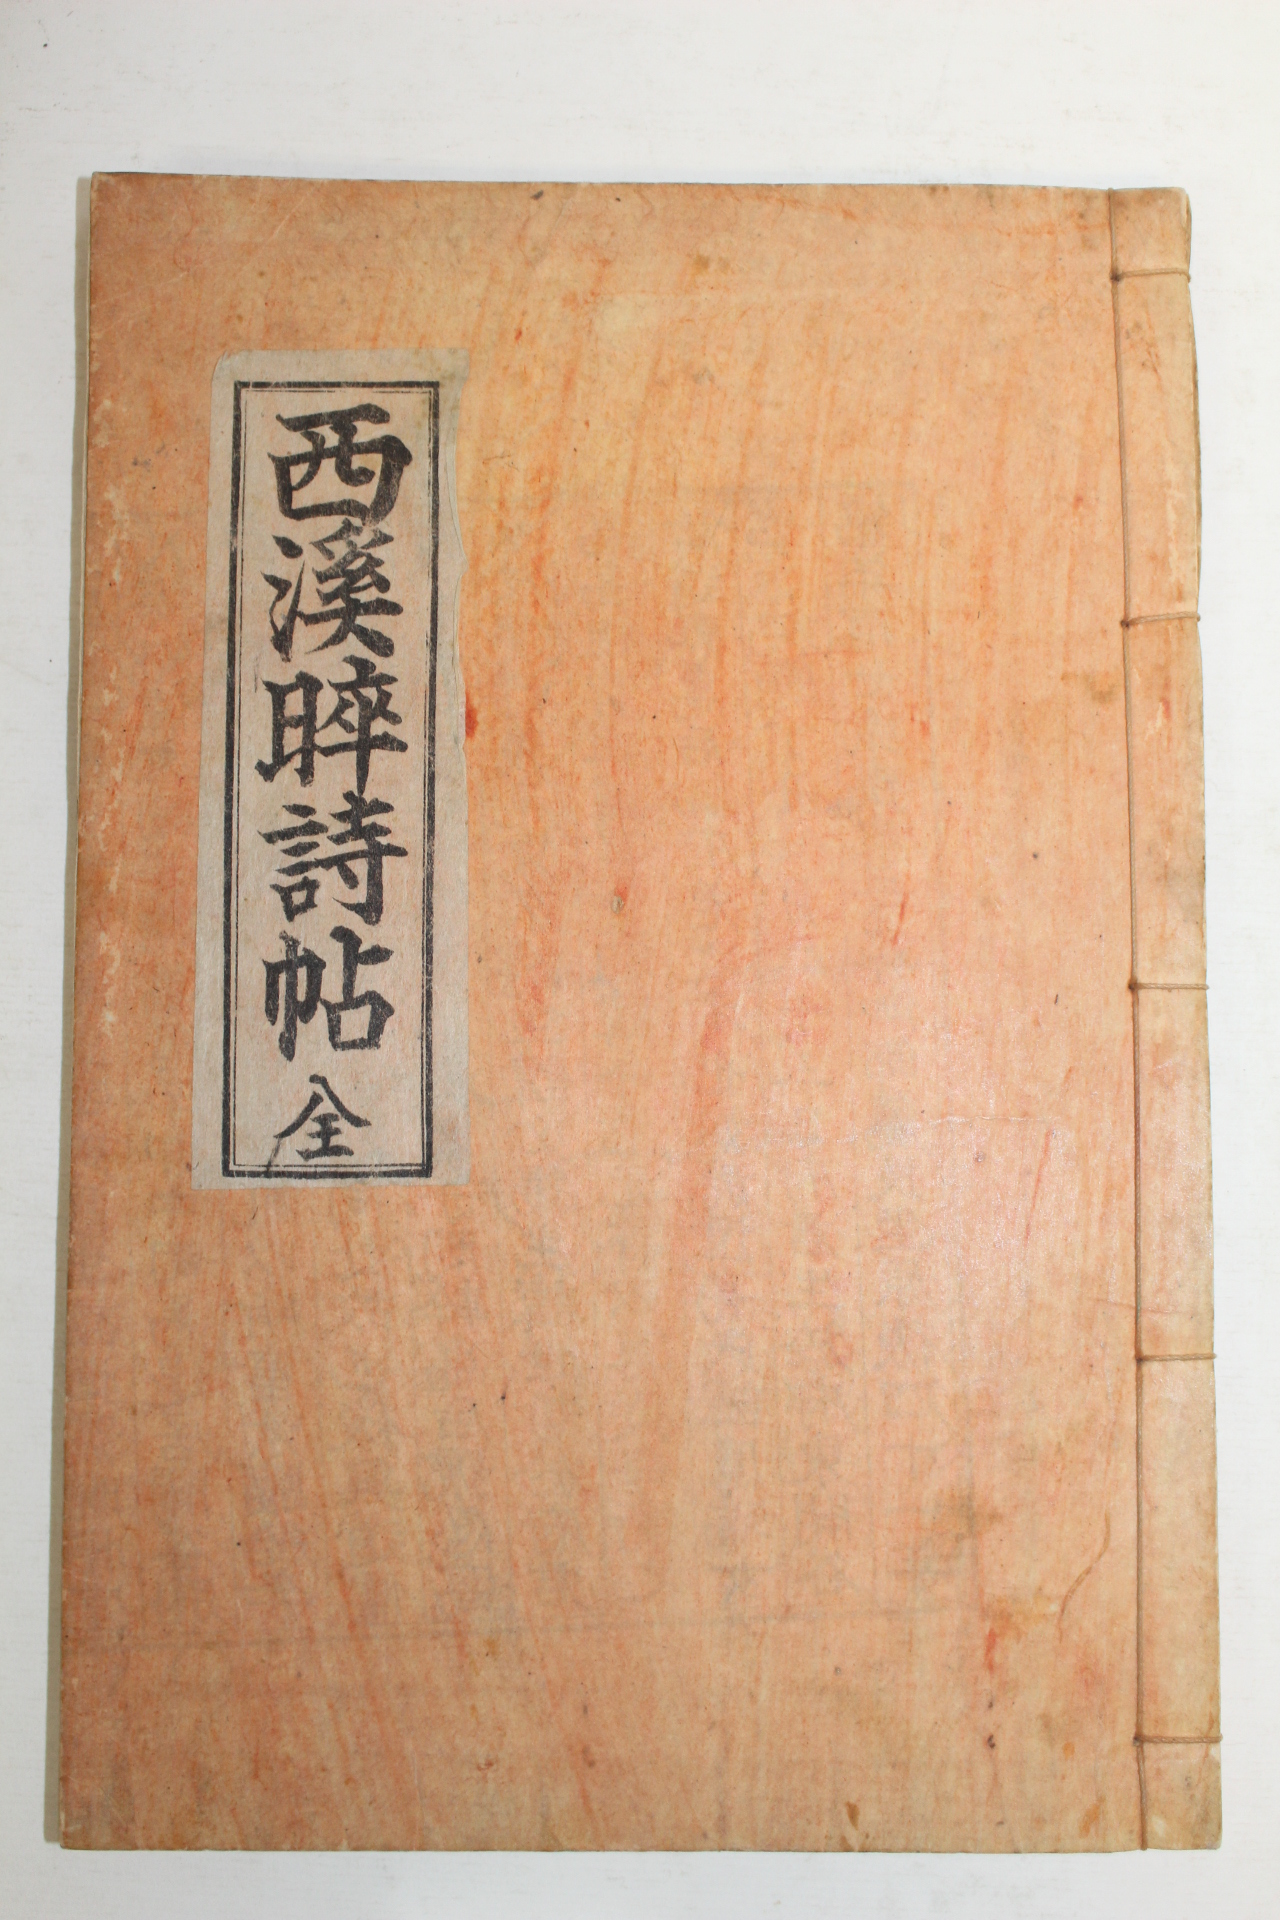 西溪睟詩帖全